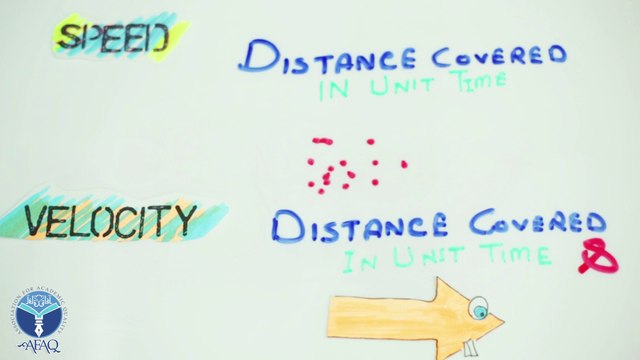 SPEED
DISTANCE COVERED
IN UNIT TIME
VELOCITY
DISTANCE COVERED
IN UNIT TIME &
ASSOCIATION FOR ACADEMIC QUALITY
AFAQ